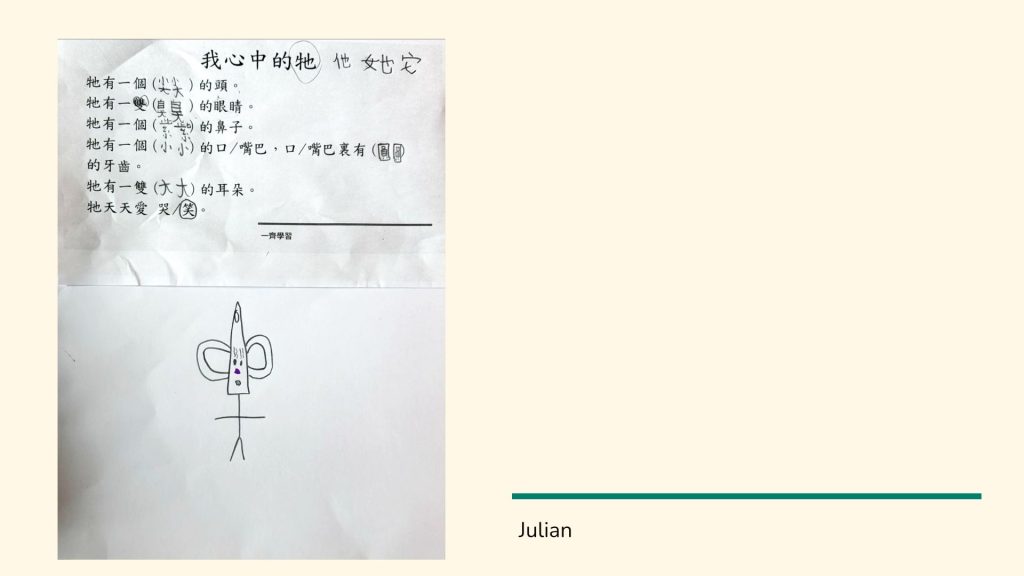 我心中的牠 他 她 它
牠有一個(尖尖)的頭。
牠有一雙( )的眼睛。
牠有一個(紫紫)的鼻子。
牠有一個(小小)的口/嘴巴,口/嘴巴裏有(圓圓)
的牙齒。
牠有一雙(大大)的耳朵。
牠天天愛 哭/笑。
一齊學習
Julian